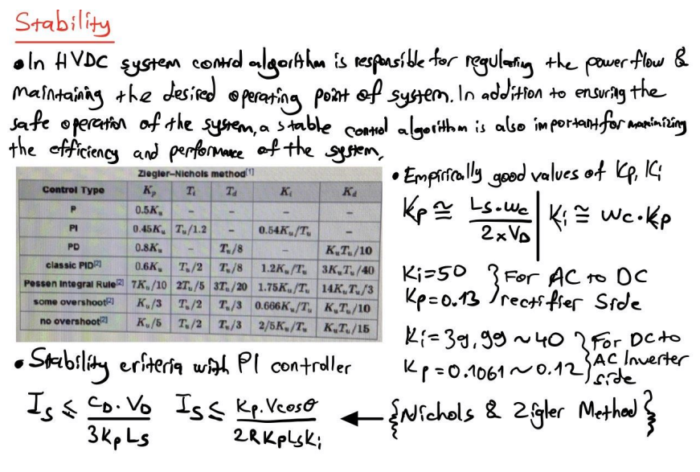 Stability
• In HVDC system control algorithm is responsible for regulating the power flow &
maintaining the desired operating point of system. In addition to ensuring the
safe operation of the system, a stable control algorithm is also important for maximizing
the efficiency and performance of the system,
Ziegler–Nichols method[1]
Control Type Kp Ti Td Ki Kd
P 0.5Ku – – – –
PI 0.45Ku Tu/1.2 – 0.54Ku/Tu –
PD 0.8Ku – Tu/8 – KuTu/10
classic PID[2] 0.6Ku Tu/2 Tu/8 1.2Ku/Tu 3KuTu/40
Pessen Integral Rule[2] 7Ku/10 2Tu/5 3Tu/20 1.75Ku/Tu 14KuTu/3
some overshoot[2] Ku/3 Tu/2 Tu/3 0.666Ku/Tu KuTu/10
no overshoot[2] Ku/5 Tu/2 Tu/3 2/5Ku/Tu KuTu/15
• Empirically good values of Kp, Ki
Kp ≅ Ls.wc / 2xVD | Ki ≅ wc.Kp
Ki=50 } For AC to DC
Kp=0.13 rectifier Side
Ki=39,99 ~ 40 } For DC to
AC Inverter
Kp=0.1061 ~ 0.12 side
• Stability criteria with PI controller
Is ≤ CD.VD / 3KpLs Is ≤ Kp.Vcosθ / 2RKpLsKi ← {Nichols & Zigler Method}